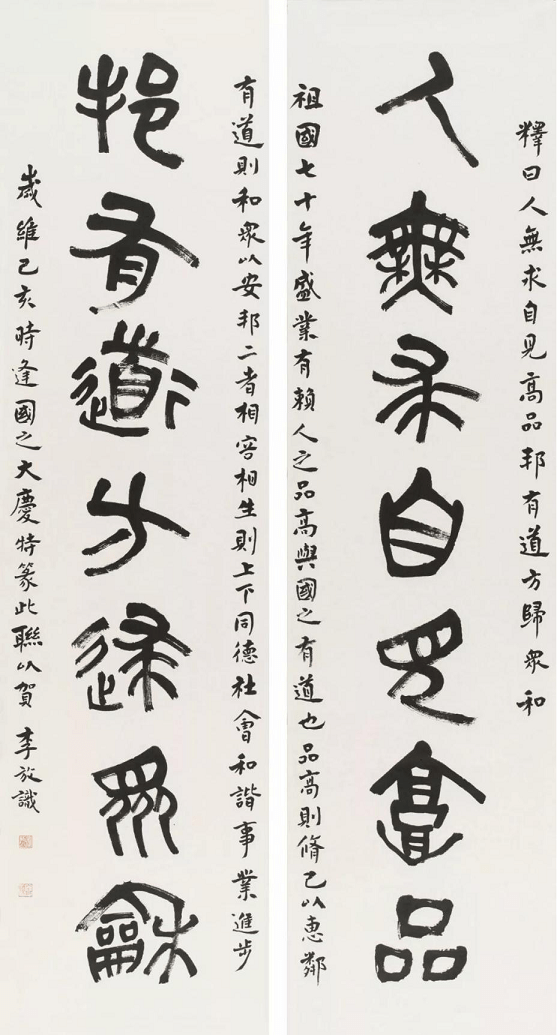 釋曰人無求自見高品邦有道方歸眾和
人無求自見高品
祖國七十年盛業有賴人之品高與國之有道也品高則脩己以惠鄰
有道則和眾以安邦二者相容相生則上下同德社會和諧事業進步
邦有道方歸眾龢
歲維己亥時逢國之大慶特篆此聯以賀 李放識